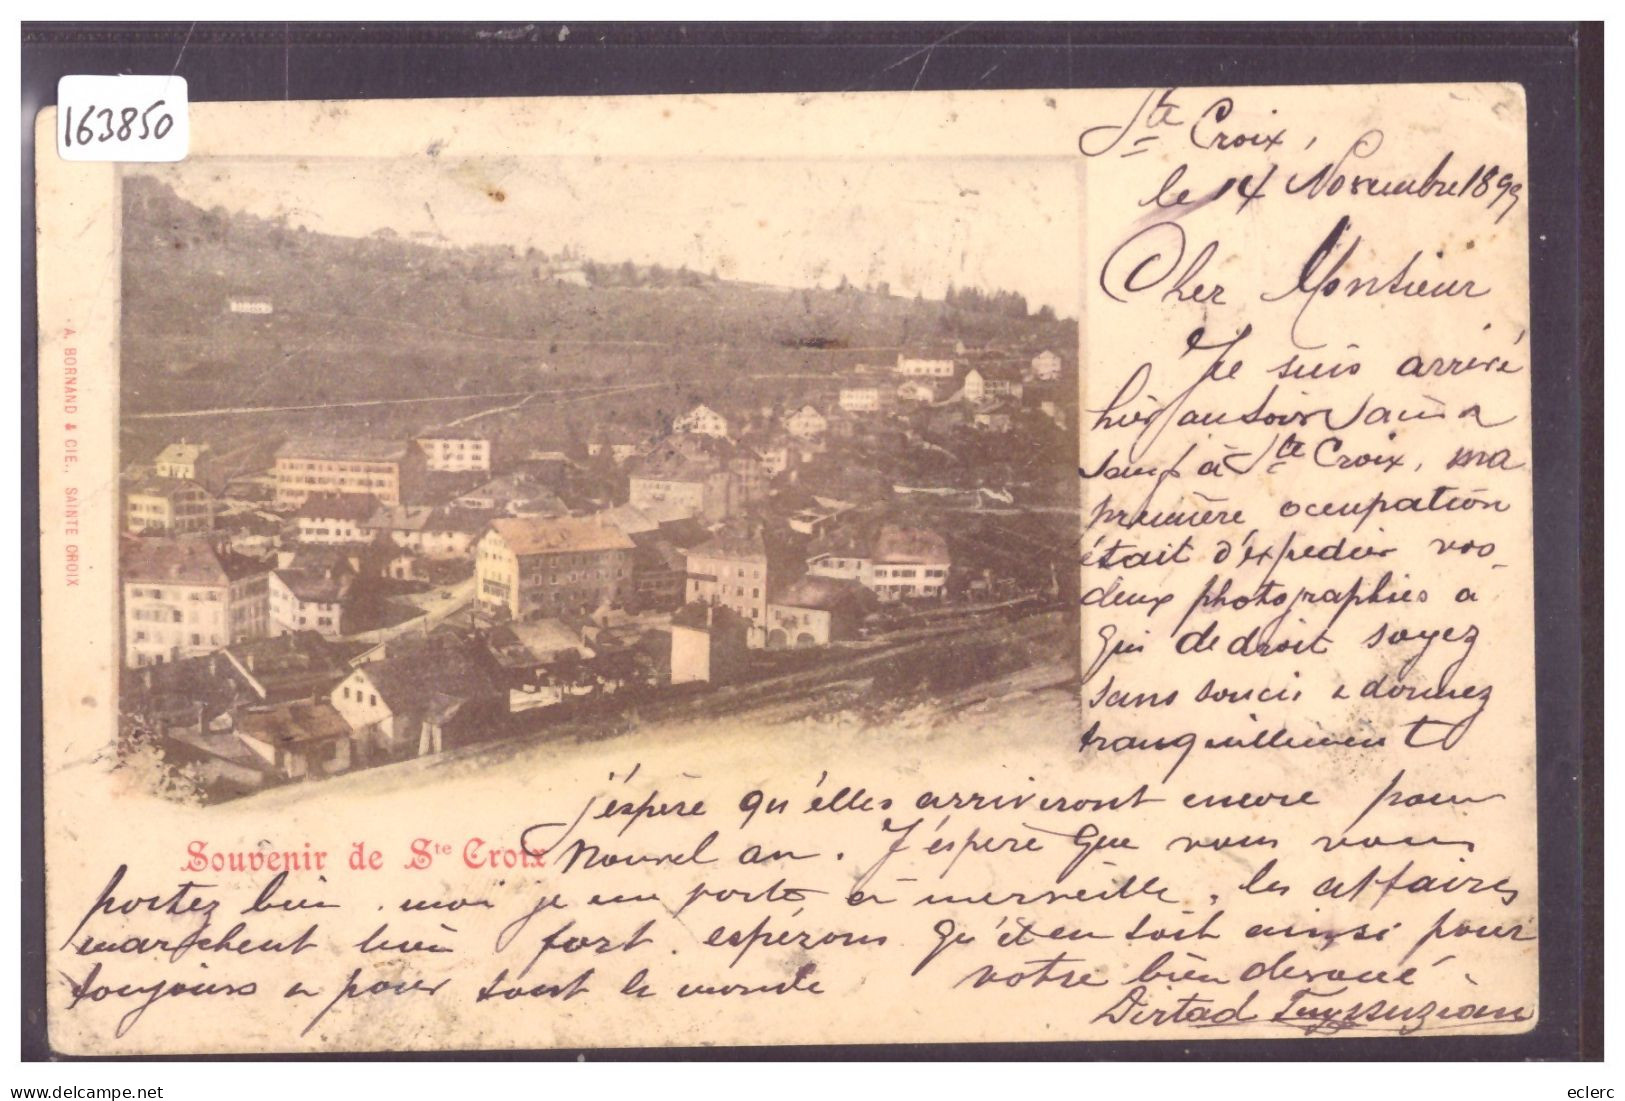 163850
A. BORNAND & CIE., SAINTE CROIX
Ste Croix,
le 14 Novembre 1899
Cher Monsieur
Je suis arrivé
hier au soir sain &
sauf à Ste Croix, ma
première occupation
était d'expedier vos
deux photographies a
qui de droit soyez
sans soucis & dormez
tranquillement
j'éspère qu'élles arriveront encore pour
Souvenir de Ste Croix
Nouvel an. J'éspère que vous vous
portez bien. moi je me porte à merveille, les affaires
marchent bien fort. espérons qu'il en soit ainsi pour
toujours & pour tout le monde
votre bien devoué
Dirtad
eclerc